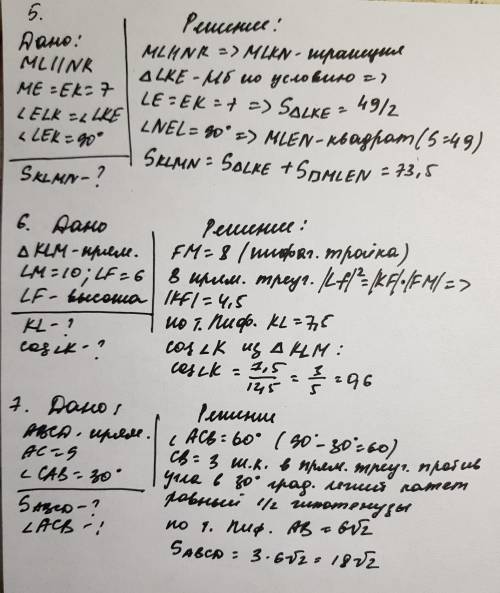 5.
Дано:
ML||NR
ME = EK = 7
∠ELK = ∠LKE
∠LEK = 90°
SKLMN - ?
Решение:
ML||NR => MLKN - трапеция
△LKE - р/б по условию =>
LE = EK = 7 => S△LKE = 49/2
∠NEL = 90° => MLEN - квадрат (S = 49)
SKLMN = S△LKE + S□MLEN = 73,5
6. Дано
△KLM - прям.
LM = 10; LF = 6
LF - высота
KL - ?
cos∠K - ?
Решение:
FM = 8 (пифаг. тройка)
В прям. треуг. |Lf|² = |KF|·|FM| =>
|KF| = 4,5
по т. Пиф. KL = 7,5
cos∠K из △KLM:
cos∠K = 7,5/12,5 = 3/5 = 0,6
7. Дано:
ABCD - прям.
AC = 9
∠CAB = 30°
SABCD - ?
∠ACB - ?
Решение
∠ACB = 60° (90° - 30° = 60)
CB = 3 т.к. в прям. треуг. против
угла в 30° град. лежит катет
равный 1/2 гипотенузы
по т. Пиф. AB = 6√2
SABCD = 3·6√2 = 18√2